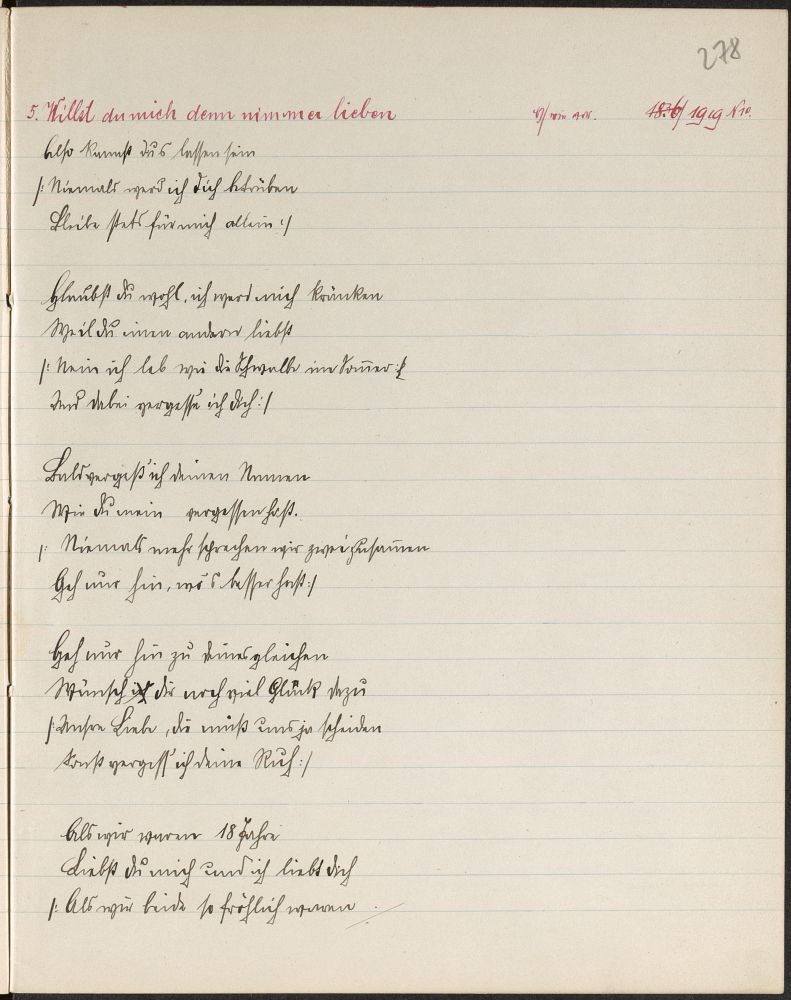 278
5. Willst du mich denn nimmer lieben
B/ wie vor. 1836/ 1919 N10.
Also kannst du's lassen sein
/: Niemals werd ich dich betrüben
Bleibe stets für mich allein :/
Glaubst du wohl, ich werd mich kränken
Weil du einen andern liebst
/: Nein ich leb wie die Schwalbe im Som̅er :/
Und dabei vergesse ich dich :/
Bald vergeß' ich deinen Namen
Wie du mein vergessen hast.
/: Niemals mehr sprechen wir zwei zusam̅en
Geh nur hin, wo's besser hast :/
Geh nur hin zu deinesgleichen
Wünsch ich dir noch viel Glück dazu
/: Unsre Liebe, die muß uns ja scheiden
Sonst vergess' ich deine Ruh :/
Als wir waren 18 Jahre
Liebst du mich und ich liebt dich
/: Als wir beide so fröhlich waren